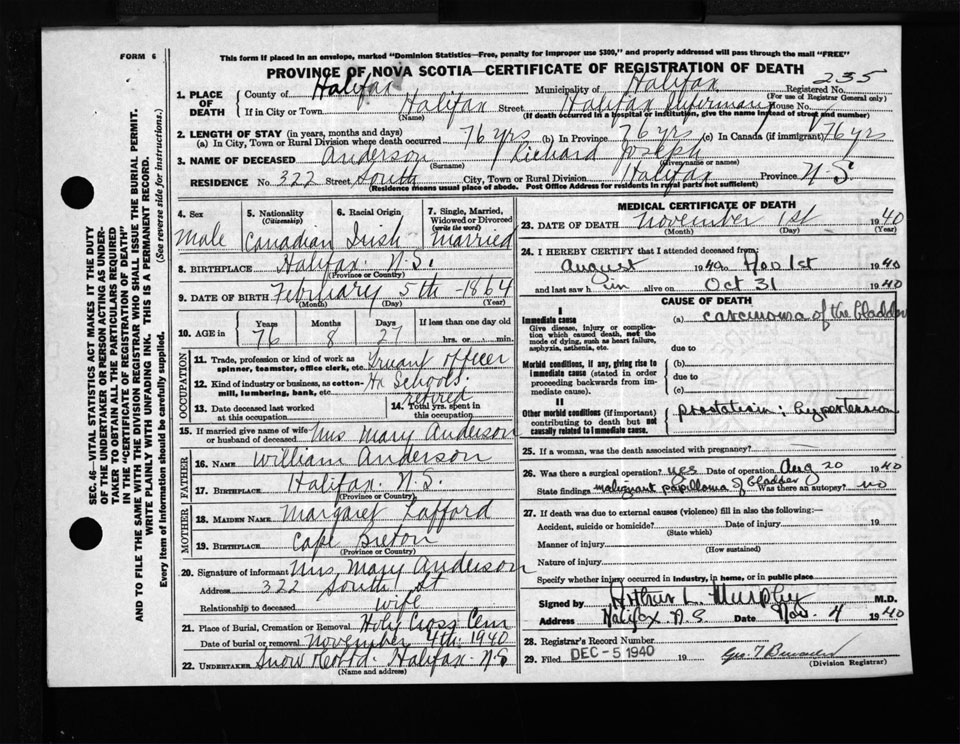 FORM 6
This form if placed in an envelope, marked "Dominion Statistics—Free, penalty for improper use $300," and properly addressed will pass through the mail "FREE"
PROVINCE OF NOVA SCOTIA—CERTIFICATE OF REGISTRATION OF DEATH
1. PLACE OF DEATH County of Halifax Municipality of Halifax Registered No. 235
(For use of Registrar General only)
If in City or Town Halifax Street Halifax Infirmary House No.
(Name) (If death occurred in a hospital or institution, give the name instead of street and number)
2. LENGTH OF STAY (in years, months and days)
(a) In City, Town or Rural Division where death occurred 76 yrs (b) In Province 76 yrs (c) In Canada (if immigrant) 76 yrs
3. NAME OF DECEASED Anderson / Richard Joseph
(Surname) (Given name or names)
RESIDENCE No. 322 Street South City, Town or Rural Division Halifax Province N-S
(Residence means usual place of abode. Post Office Address for residents in rural parts not sufficient)
4. Sex Male
5. Nationality (Citizenship) Canadian
6. Racial Origin Irish
7. Single, Married, Widowed or Divorced (write the word) Married
8. BIRTHPLACE Halifax. N.S.
(Province or Country)
9. DATE OF BIRTH February 5th - 1864
(Month) (Day) (Year)
10. AGE in Years 76 Months 8 Days 27 If less than one day old hrs. or min.
OCCUPATION
11. Trade, profession or kind of work as spinner, teamster, office clerk, etc. Truant Officer
12. Kind of industry or business, as cotton-mill, lumbering, bank, etc. Hx Schools.
13. Date deceased last worked at this occupation
14. Total yrs. spent in this occupation
retired
15. If married give name of wife or husband of deceased Mrs Mary Anderson
FATHER
16. NAME William Anderson
17. BIRTHPLACE Halifax. N.S.
(Province or Country)
MOTHER
18. MAIDEN NAME Margaret Lafford
19. BIRTHPLACE Cape Breton
(Province or Country)
20. Signature of informant Mrs. Mary Anderson
Address 322 South St
Relationship to deceased wife
21. Place of Burial, Cremation or Removal Holy Cross Cem
Date of burial or removal November 4th. 1940
22. UNDERTAKER Snow & Co Ltd. Halifax N-S
(Name and address)
MEDICAL CERTIFICATE OF DEATH
23. DATE OF DEATH November 1st 1940
(Month) (Day) (Year)
24. I HEREBY CERTIFY that I attended deceased from:
August 1940 to Nov 1st 1940
and last saw him alive on Oct 31 1940
CAUSE OF DEATH
I
Immediate cause
Give disease, injury or complication which caused death, not the mode of dying, such as heart failure, asphyxia, asthenia, etc.
(a) carcinoma of the bladder
due to
Morbid conditions, if any, giving rise to immediate cause (stated in order proceeding backwards from immediate cause).
(b)
due to
(c)
II
Other morbid conditions (if important) contributing to death but not causally related to immediate cause.
hypertension
25. If a woman, was the death associated with pregnancy?
26. Was there a surgical operation? yes Date of operation Aug 20 1940
State findings malignant papilloma of bladder Was there an autopsy? no
27. If death was due to external causes (violence) fill in also the following:—
Accident, suicide or homicide? Date of injury 19
(State which)
Manner of injury
(How sustained)
Nature of injury
Specify whether injury occurred in industry, in home, or in public place
Signed by Arthur L. Murphy M.D.
Address Halifax N.S. Date Nov. 4 1940
28. Registrar's Record Number
29. Filed DEC -5 1940 19
(Division Registrar)
SEC. 46—VITAL STATISTICS ACT MAKES IT THE DUTY
OF THE UNDERTAKER OR PERSON ACTING AS UNDER-
TAKER TO OBTAIN ALL THE PARTICULARS REQUIRED
IN THE "CERTIFICATE OF REGISTRATION OF DEATH"
AND TO FILE THE SAME WITH THE DIVISION REGISTRAR WHO SHALL ISSUE THE BURIAL PERMIT.
WRITE PLAINLY WITH UNFADING INK. THIS IS A PERMANENT RECORD.
Every item of information should be carefully supplied. (See reverse side for instructions.)